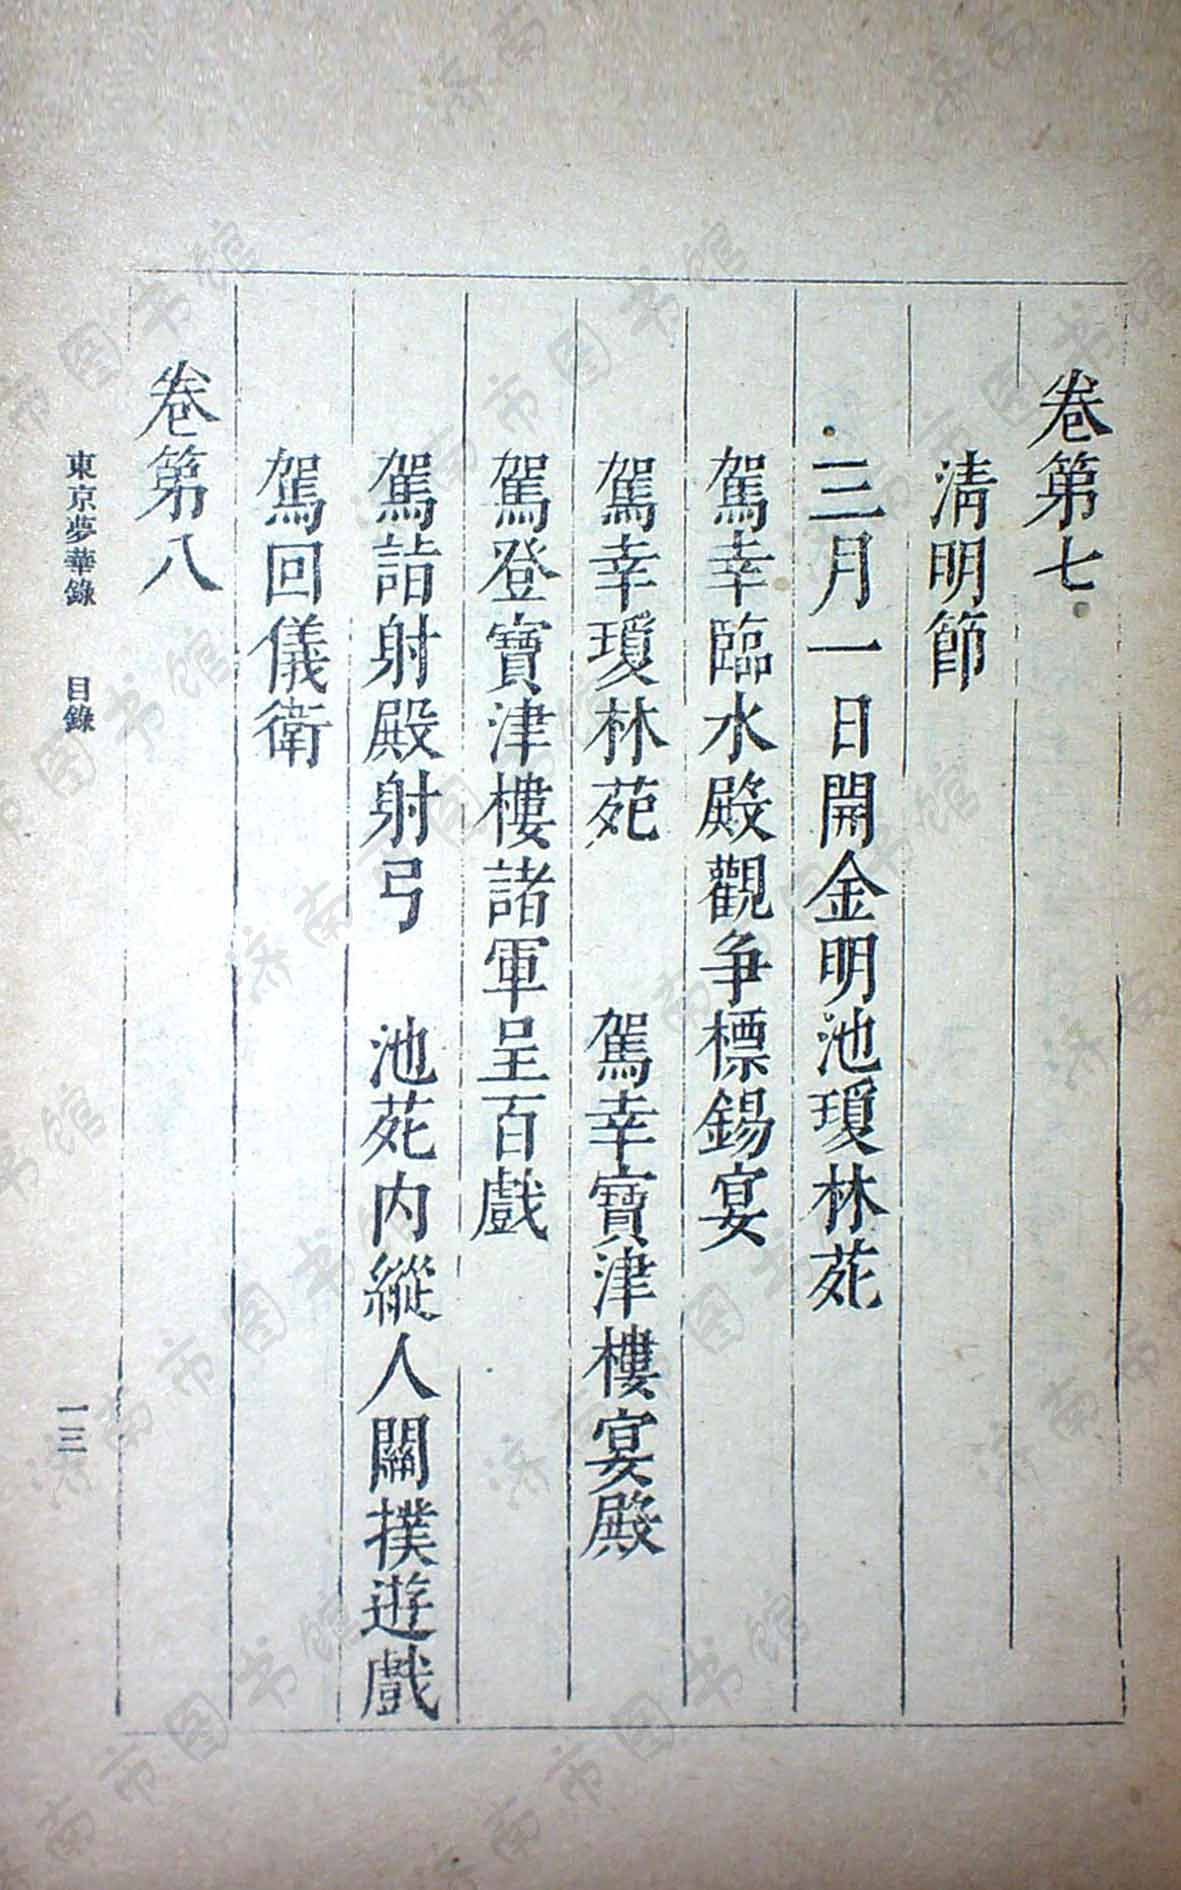 卷第七
清明節
三月一日開金明池瓊林苑
駕幸臨水殿觀争標錫宴
駕幸瓊林苑　駕幸寶津樓宴殿
駕登寶津樓諸軍呈百戲
駕詣射殿射弓　池苑内縱人關撲遊戲
駕回儀衛
卷第八
東京夢華錄　目錄
一三
济南市图书馆